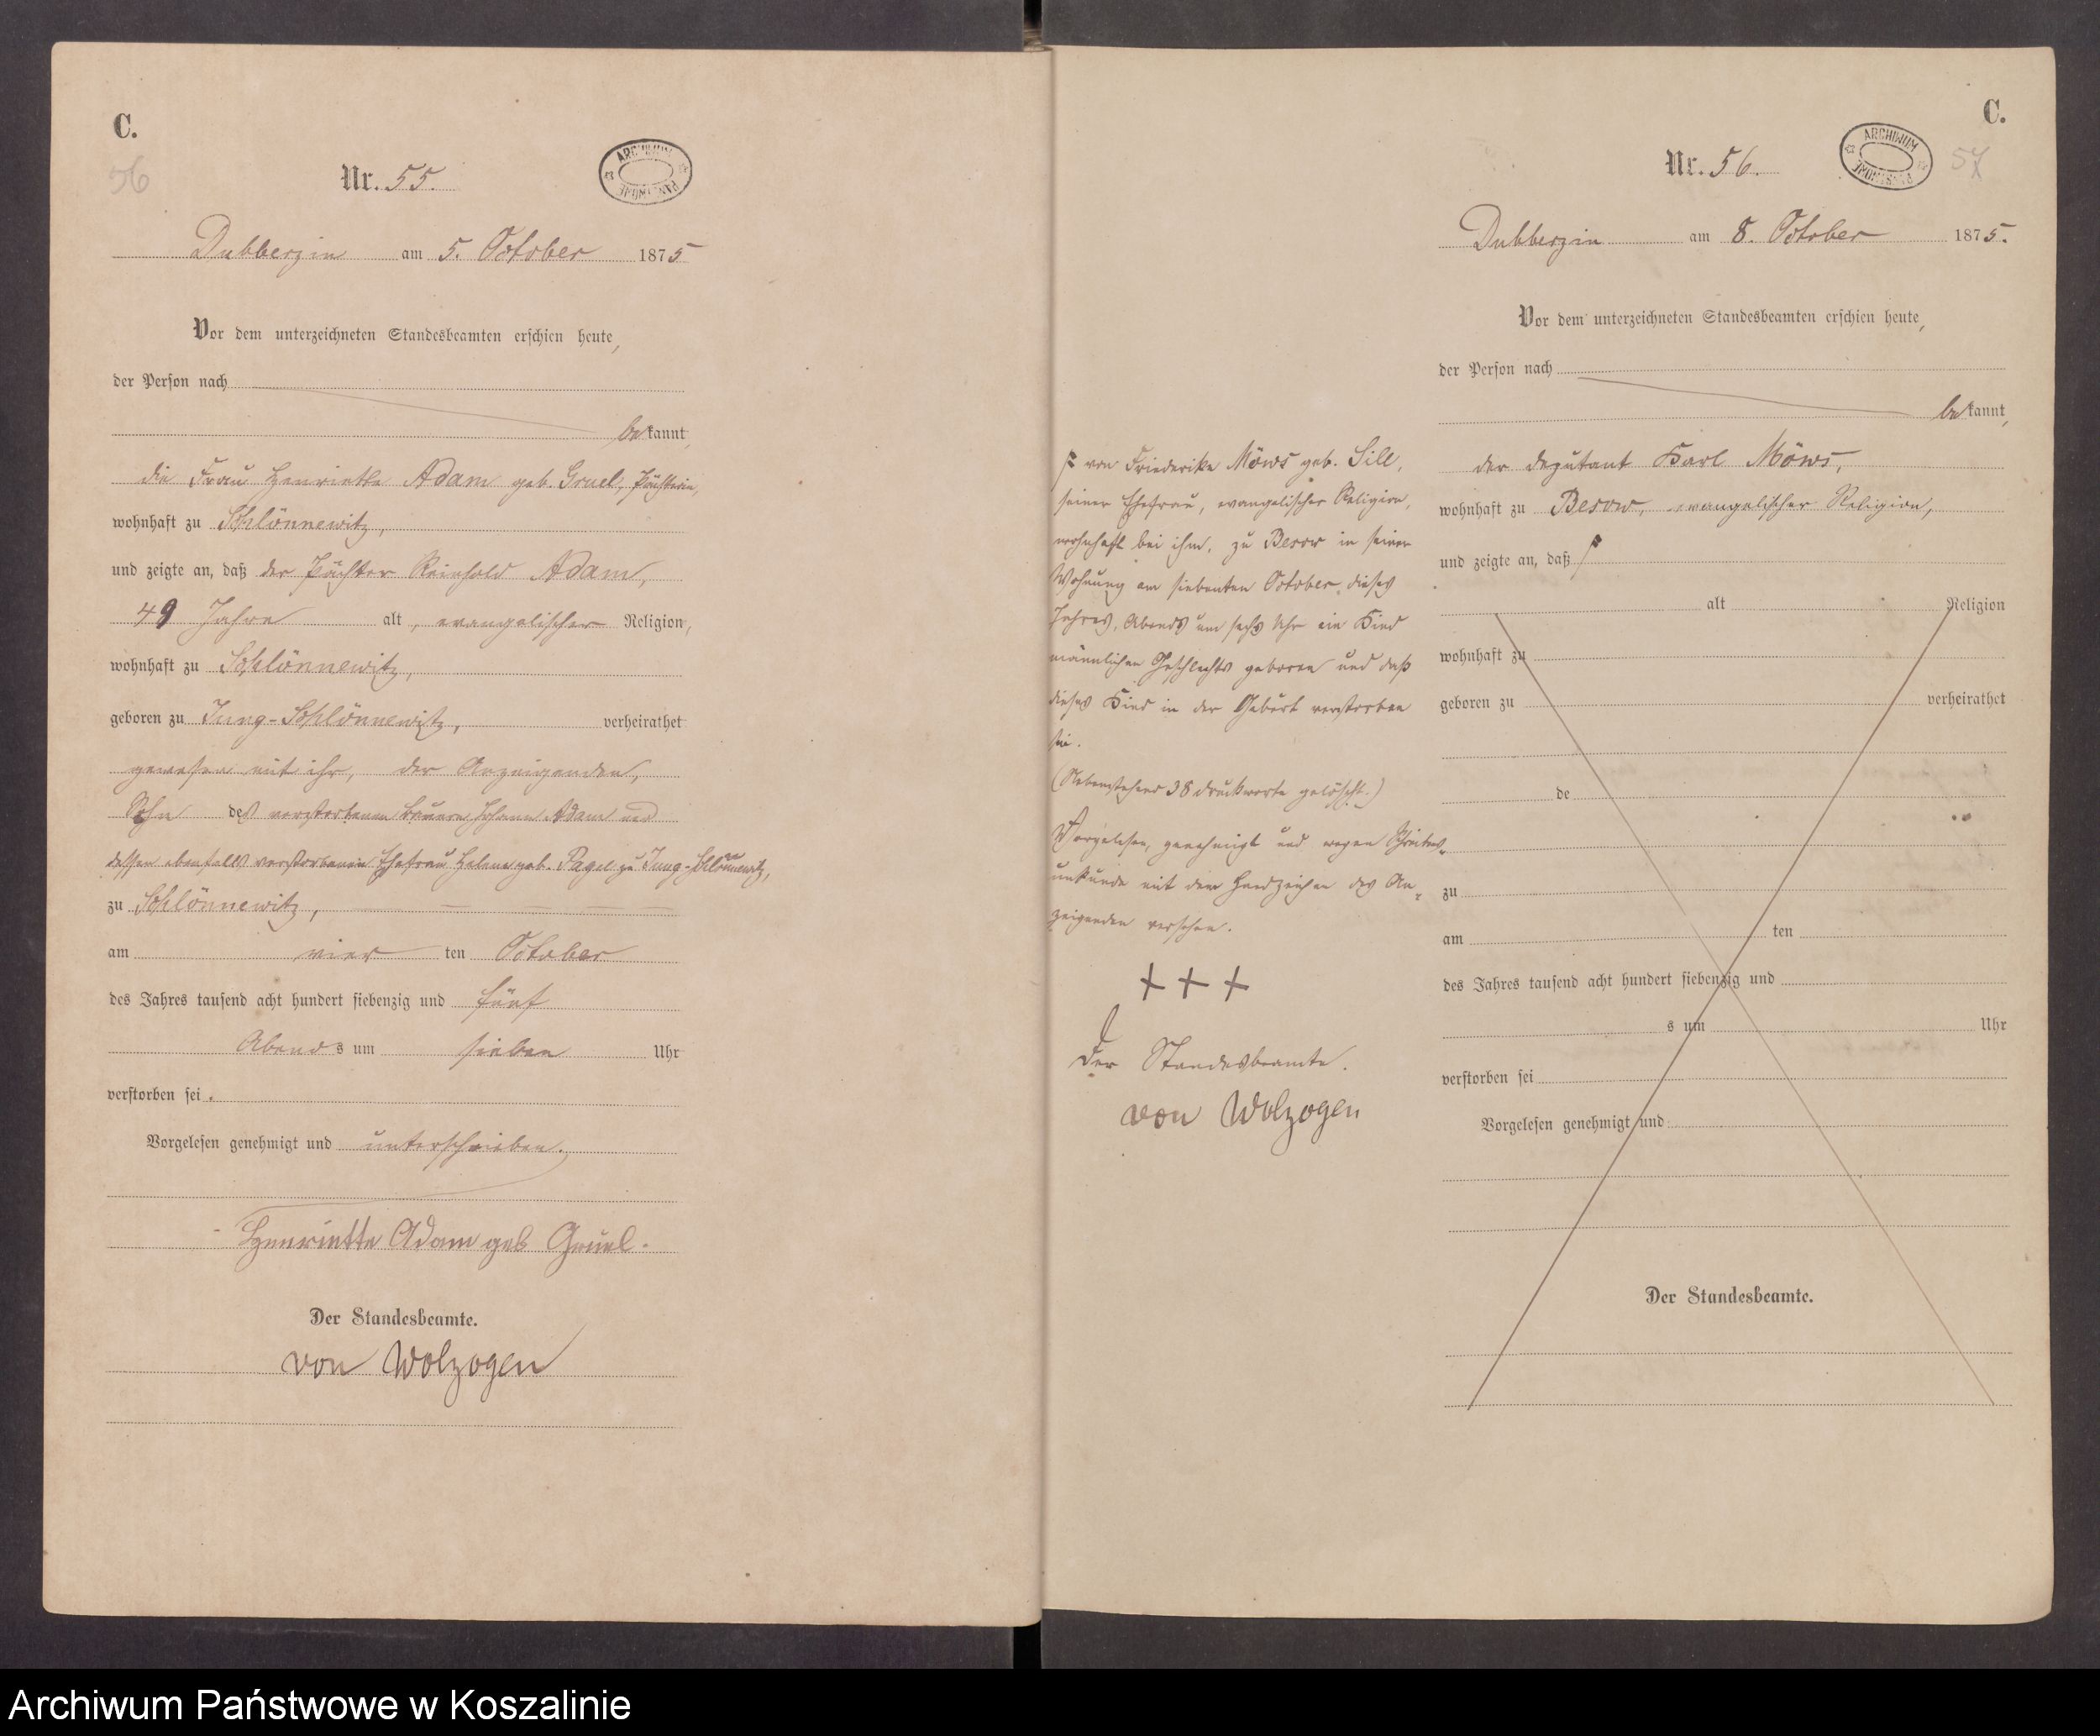 C.
56
Nr. 55.
ARCHIWUM PAŃSTWOWE
Dubberzin am 5. October 1875
Vor dem unterzeichneten Standesbeamten erschien heute,
der Person nach
bekannt,
die Frau Henriette Adam geb. Gruel, Pächterin,
wohnhaft zu Schlönnewitz,
und zeigte an, daß der Pächter Reinhold Adam,
49 Jahre alt, evangelischer Religion,
wohnhaft zu Schlönnewitz,
geboren zu Jung-Schlönnewitz, verheirathet
gewesen mit ihr, der Anzeigenden,
Sohn des verstorbenen Bauern Johann Adam und
dessen ebenfalls verstorbenen Ehefrau Helene geb. Pagel zu Jung-Schlönnewitz,
zu Schlönnewitz,
am vier ten October
des Jahres tausend acht hundert siebenzig und fünf
Abends um sieben Uhr
verstorben sei.
Vorgelesen genehmigt und unterschrieben.
Henriette Adam geb Gruel.
Der Standesbeamte.
von Wolzogen
C.
57
Nr. 56.
ARCHIWUM PAŃSTWOWE
Dubberzin am 8. October 1875.
Vor dem unterzeichneten Standesbeamten erschien heute,
der Person nach
bekannt,
der Deputant Karl Möws,
wohnhaft zu Besow, evangelischer Religion,
und zeigte an, daß
alt Religion
wohnhaft zu
geboren zu verheirathet
de
zu
am ten
des Jahres tausend acht hundert siebenzig und
s um Uhr
verstorben sei
Vorgelesen genehmigt und
Der Standesbeamte.
von Friederike Möws geb. Sill,
seiner Ehefrau, evangelischer Religion,
wohnhaft bei ihm, zu Besow in seiner
Wohnung am siebenten October dieses
Jahres, Abends um sechs Uhr ein Kind
männlichen Geschlechts geboren und daß
dieses Kind in der Geburt verstorben
sei.
(Nebenstehend 38 Druckworte gelöscht.)
Vorgelesen, genehmigt und wegen Schreibens-
unkunde mit dem Handzeichen des An-
zeigenden versehen.
+ + +
Der Standesbeamte.
von Wolzogen
Archiwum Państwowe w Koszalinie